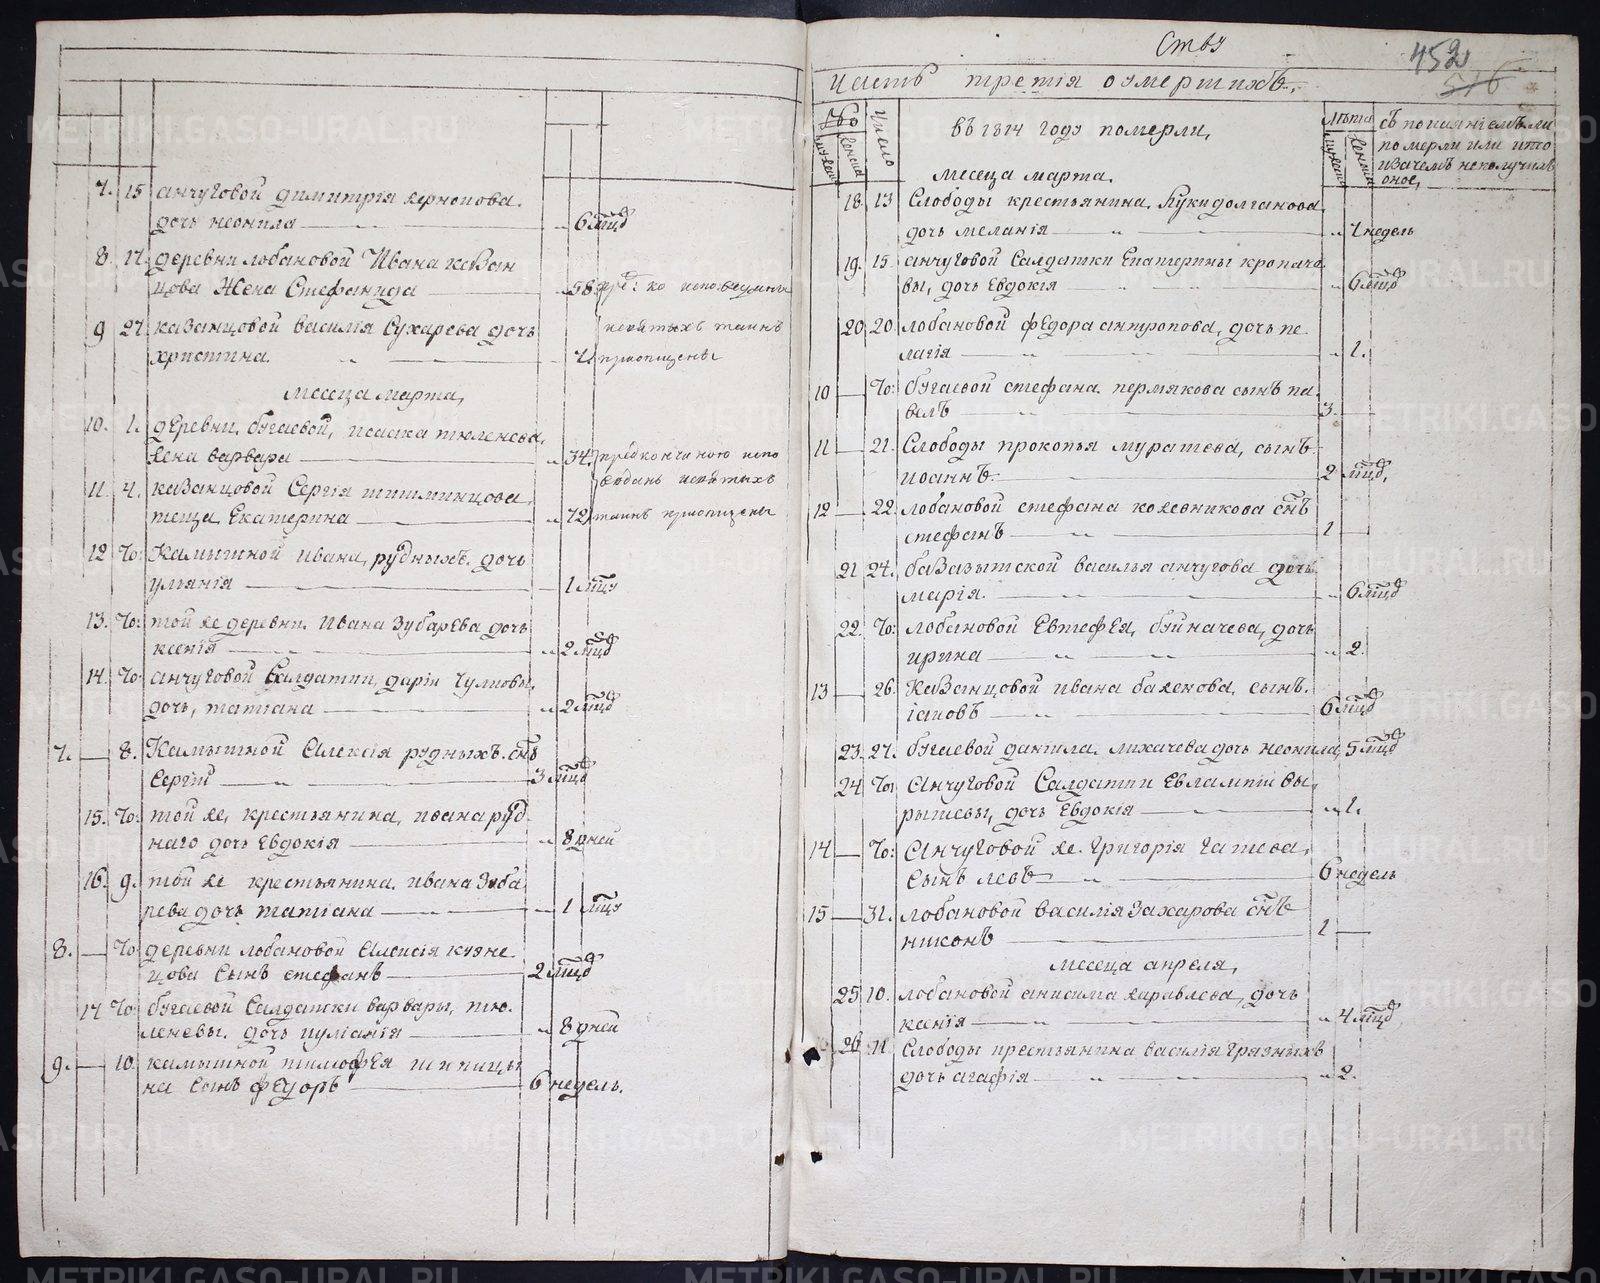 7. 15 анчуговой димитрія
дочь неонила 6 мцд
8. 17. деревни лобановой Ивана казан
цова Жена Стефанида 58
9 27. казанцовой василія Сухарева дочь
христина.
месеца марта,
10. 1. деревни, бугаевой, исаака тюленева,
жена варвара 34.
11. 4. казанцовой Сергія
теща, Екатерина 72
12 То: Камышной ивана, рудныхъ. дочь
уліянія 1
13. То: той же деревни. Ивана Зубарева дочь
ксенія 2 мцд
14. То: анчуговой Салдатки, даріи
дочь, татіана 2 мцд
7. 8. Камышной Алексія рудныхъ. снъ
Сергій 3 мцд
15. То: той же, крестьянина, иоана руд
наго дочь Евдокія 8 дней
16. 9. той же крестьянина. ивана Зуба
рева дочь татіана 1
8. То: деревни лобановой Алексія
цова Сынъ стефанъ 2 мцд
17 То: бугаевой Салдатки варвары, тю.
леневы. дочь иуліанія 8 дней
9. 10. камышной тимофея
на Сынъ феудоръ 6 недель.
452
516
часть третія оумершихъ.
число
въ 1814 году померли,
лета
съ покаяніемъ ли
померли или кто
и зачемъ неполучилъ
оное,
месеца марта.
18. 13 Слободы крестьянина, Луки долганова
дочь меланія 7 недель
19. 15. анчуговой Салдатки Екатерины кропаче
вы, дочь Евдокія 6 мцд
20 20. лобановой федора антропова, дочь пе
лагія 1.
10 То: бугаевой стефана. пермякова сынъ па.
велъ 3.
11 21. Слободы прокопья муратева, сынъ
иоаннъ 2 мцд,
12 22. лобановой стефана кожевникова снъ
стефанъ 1
21 24. василья анчугова дочь
марія. 6 мцд
22. То: лобановой Евтефея, буйначева, дочь
ирина 2.
13 26. Казанцовой ивана баженова, сынъ.
іаковъ 6 мцд
23. 27. бугаевой даніила. лихачева дочь неонила, 5 мцд
24 То: Анчуговой Салдатки Евлампіи
дочь Евдокія 1.
14 То: Анчуговой же. Григорія Гатева,
Сынъ левъ 6 недель
15 31. лобановой василія Захарова снъ
никонъ 1
месеца апреля,
25 10. лобановой анисима журавлева, дочь
ксенія 4 мцд
26 11 Слободы крестьянина василія Грязныхъ
дочь агафія 2.